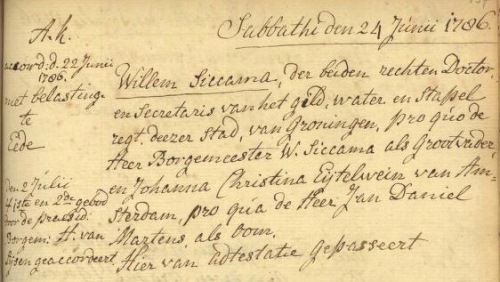 Sabbathi den 24 Junii 1786.
A.k.
accord: d. 22 Junii
1786.
met belasting
te
Eede
Willem Siccama, der beiden rechten Doctor
en Secretaris van het gild, water en Stapel
regt deezer stad, van Groningen, pro quo de
Heer Borgemeester W. Siccama als Grootvader
en Johanna Christina Eytelwein van Am-
sterdam, pro qua de Heer Jan Daniel
Martens, als oom.
Hier van adtestatie gepasseert
den 2 Julii
1ste en 2de gebod
voor de praesid:
Borgem: H. van
geaccordeert